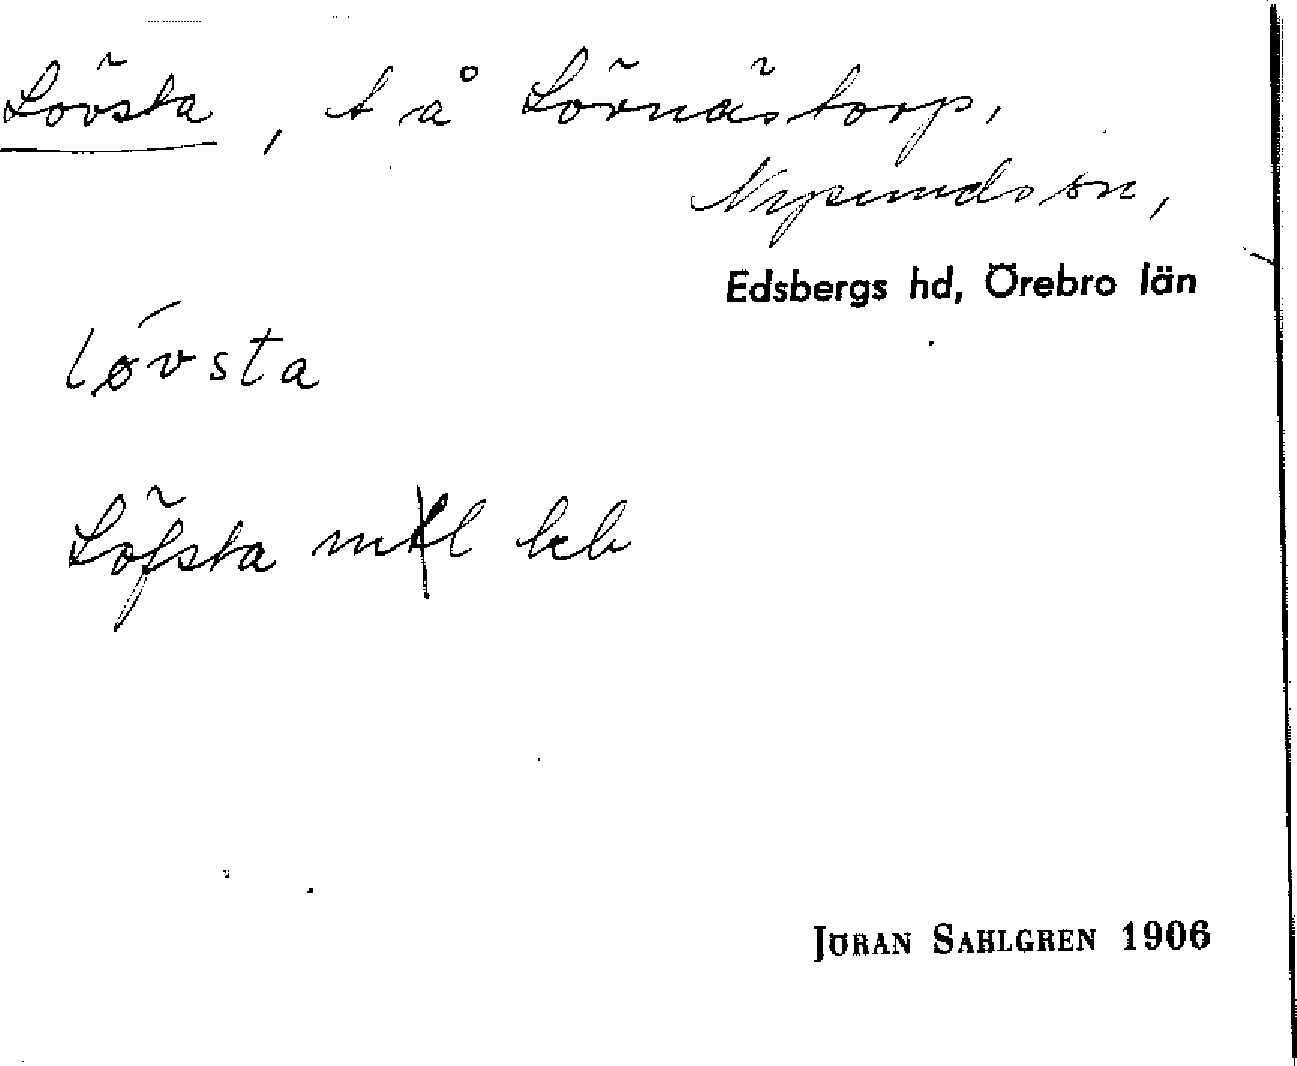 Lövsta, t å Lörnästorp,
Nysunds sn,
Edsbergs hd, Örebro län
løvsta
Löfsta mtl kb
JÖRAN SAHLGREN 1906